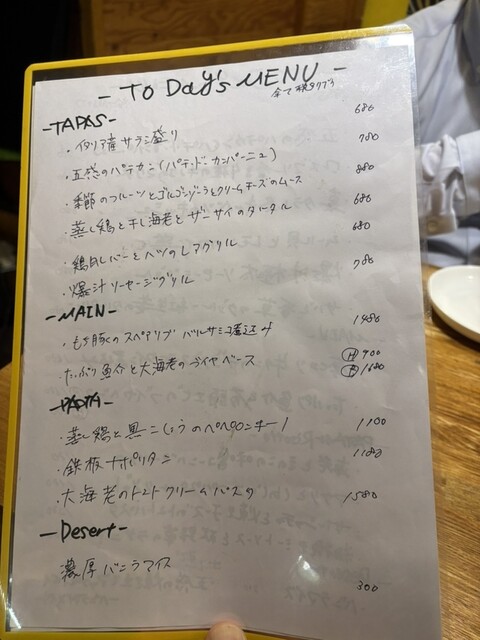 - TO DAY's MENU -
全て税タリブリ
- TAPAS -
・イタリア産サラミ盛り 680
・五感のパテカン(パテ・ド・カンパーニュ) 780
・季節のフルーツとゴルゴンゾーラとクリームチーズのムース 880
・蒸し鶏と干し海老とザーサイのタルタル 680
・鶏白レバーとハツのレアグリル 680
・爆汁ソーセージグリル 780
- MAIN -
・もち豚くのスペアリブ バルサミコ煮込み 1480
たっぷり魚介と大海老のブイヤベース Ⓗ900
Ⓟ1680
- PASTA -
・蒸し鶏と黒こしょうのペペロンチーノ 1100
・鉄板ナポリタン 1180
・大海老のトマトクリームパスタ 1580
- Desert -
濃厚バニラアイス 300